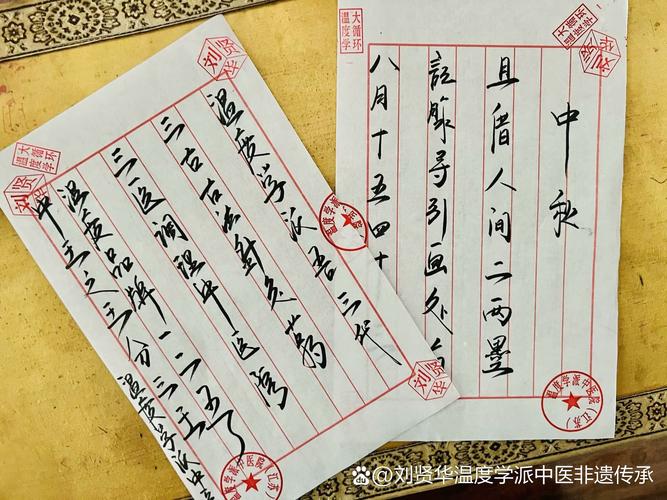 中秋
且借人间二两墨
引画
八月十五四十
大循环
温度学
刘贤华
温度学派中医院（江苏）
大循环
温度学
刘贤华
温度学派吾三代
三古古法针灸
三医调理中医湾
温度品牌一二五了
中立之三分三立
温度学派中
刘贤华
温度学派中医院（江苏）
刘贤华温度学派中医非遗传承